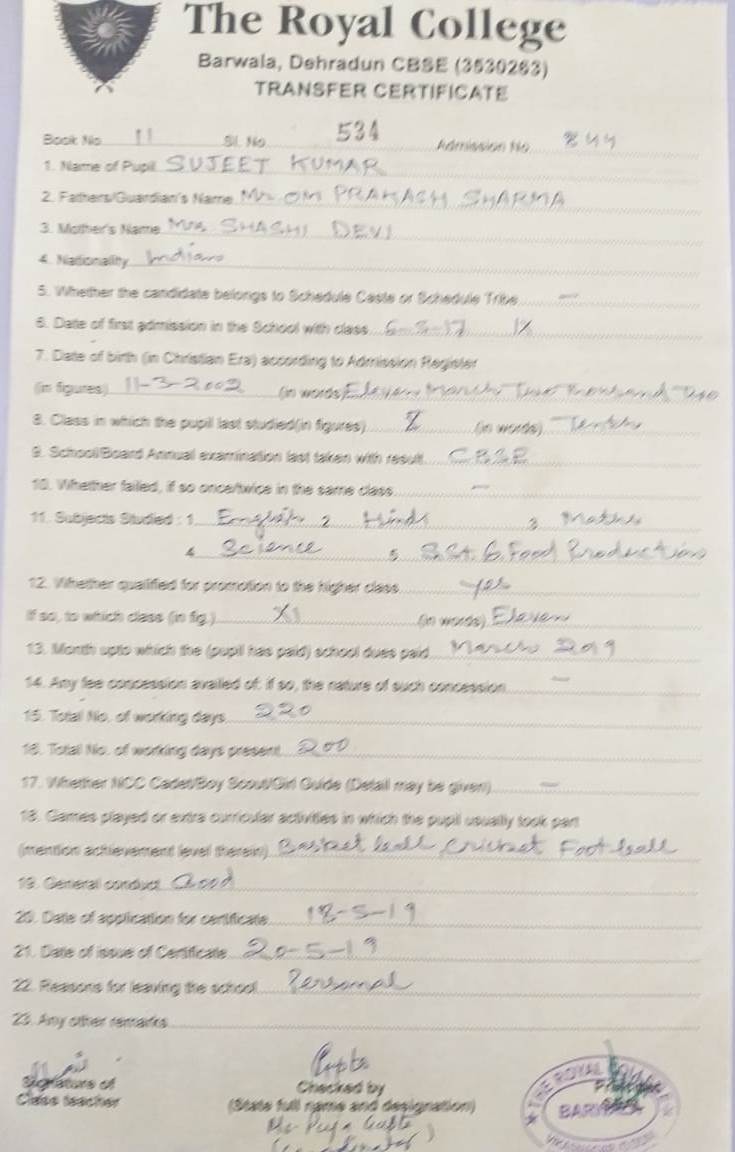 The Royal College
Barwala, Dehradun CBSE (3530263)
TRANSFER CERTIFICATE
Book No 11 Sl. No 534 Admission No 844
1. Name of Pupil SUJEET KUMAR
2. Fathers/Guardian's Name Mr. OM PRAKASH SHARMA
3. Mother's Name Mrs SHASHI DEVI
4. Nationality Indian
5. Whether the candidate belongs to Schedule Caste or Schedule Tribe —
6. Date of first admission in the School with class 6-5-17 IX
7. Date of birth (in Christian Era) according to Admission Register
(in figures) 11-3-2002 (in words) Eleven March Two Thousand Two
8. Class in which the pupil last studied(in figures) X (in words) Tenth
9. School/Board Annual examination last taken with result CBSE
10. Whether failed, if so once/twice in the same class —
11. Subjects Studied : 1. English 2. Hindi 3. Maths
4. Science 5. S.St. 6. Food Production
12. Whether qualified for promotion to the higher class yes
If so, to which class (in fig.) XI (in words) Eleven
13. Month upto which the (pupil has paid) school dues paid March 2019
14. Any fee concession availed of: if so, the nature of such concession —
15. Total No. of working days 220
16. Total No. of working days present 200
17. Whether NCC Cadet/Boy Scout/Girl Guide (Detail may be given) —
18. Games played or extra curricular activities in which the pupil usually took part
(mention achievement level therein) Basket ball Cricket Foot ball
19. General conduct Good
20. Date of application for certificate 18-5-19
21. Date of issue of Certificate 20-5-19
22. Reasons for leaving the school Personal
23. Any other remarks
Signature of Checked by
Class teacher (State full name and designation)
THE ROYAL
Gupta